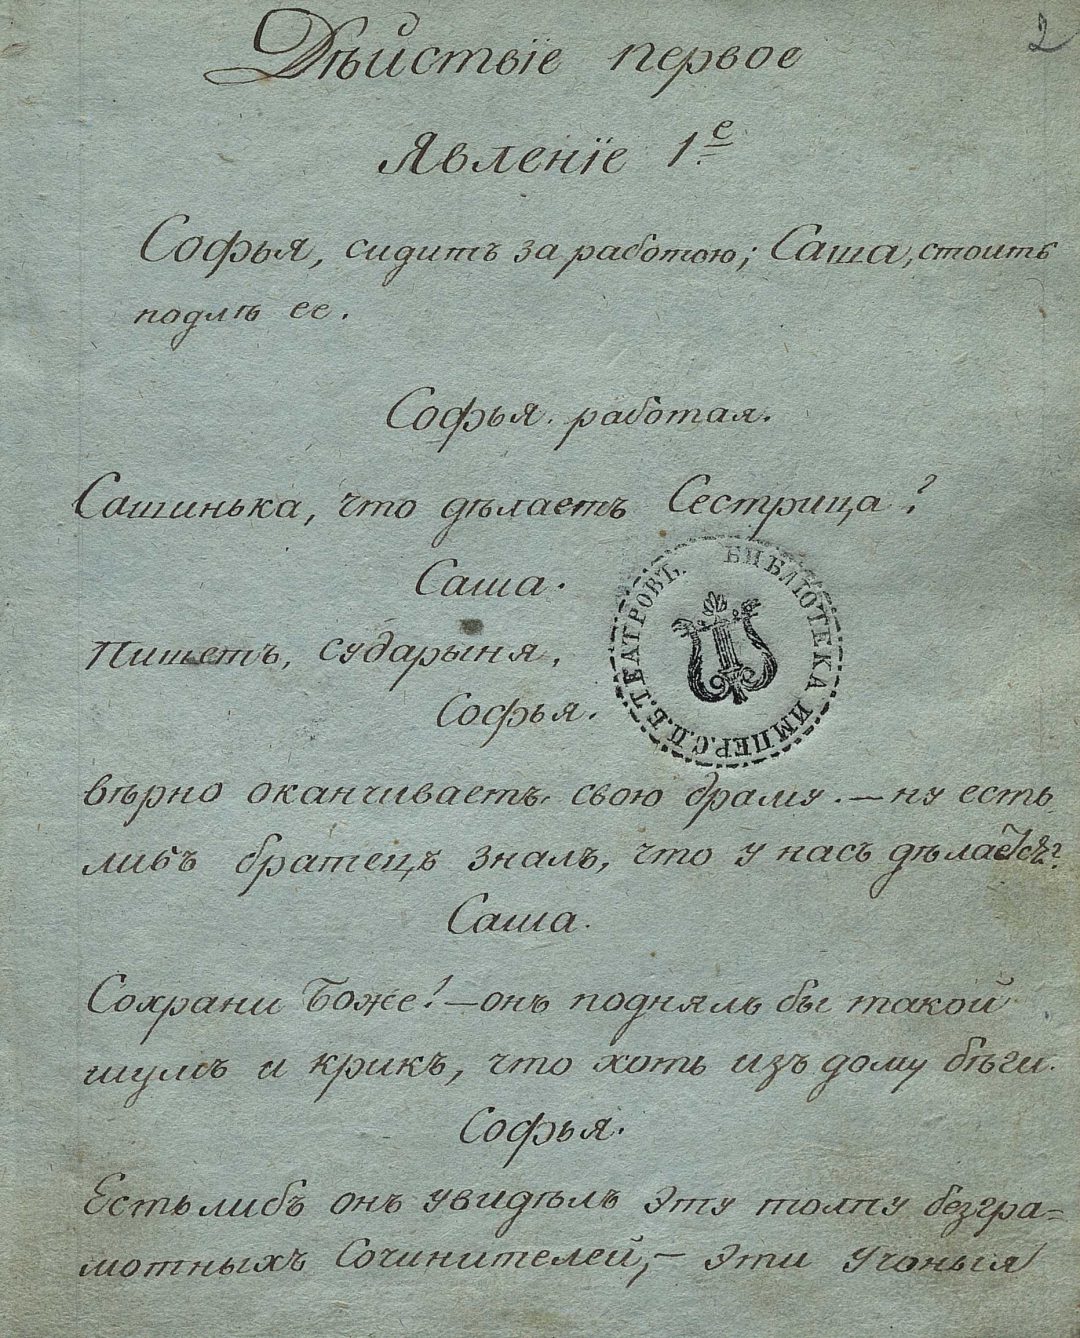 2
Дѣйствіе первое
Явленіе 1.е
Софья, сидитъ за работою; Саша, стоитъ
подлѣ ее.
Софья. работая.
Сашинька, что дѣлаетъ Сестрица?
Саша.
Пишетъ, сударыня.
БИБЛІОТЕКА ИМПЕР. С.П.Б. ТЕАТРОВЪ.
Софья.
вѣрно оканчиваетъ свою драму. — ну есть
либъ братецъ зналъ, что у насъ дѣлается?
Саша.
Сохрани Боже! — онъ поднялъ бы такой
шумъ и крикъ, что хоть изъ дому бѣги.
Софья.
Естьлибъ онъ увидѣлъ эту толпу безгра=
мотныхъ Сочинителей, — эти учоныя